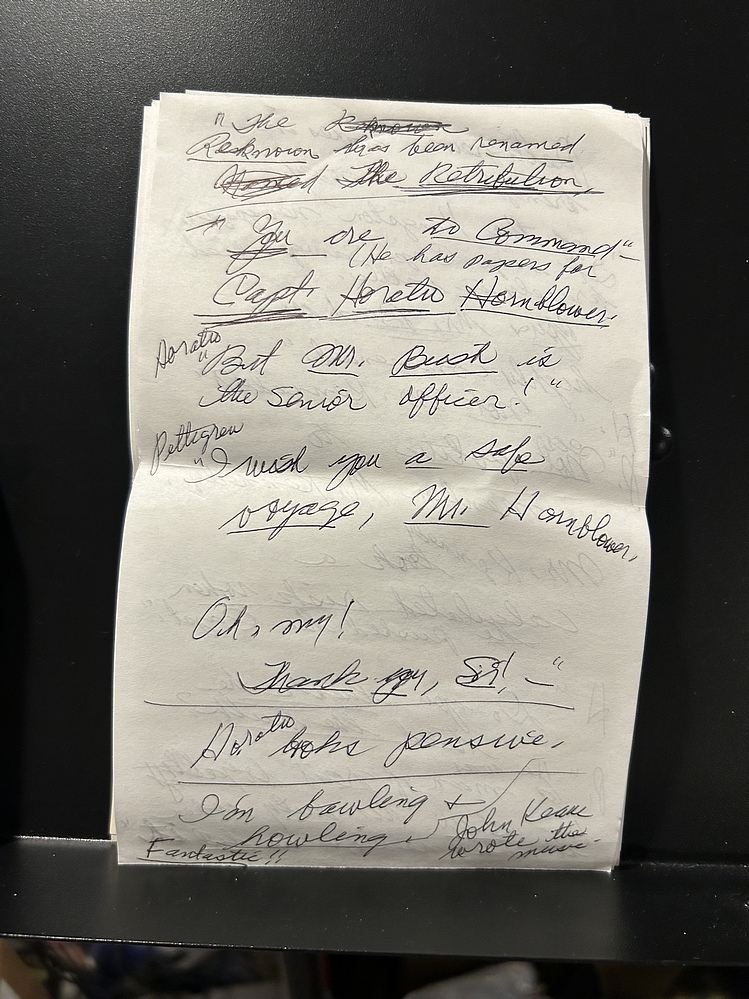 "The Reknown
Reknown has been renamed
Named The Retribution,
" You are to Command—"
(He has papers for
Capt. Horatio Hornblower.
Horatio
"But Mr. Bush is
the senior officer!"
Pettigrew
"I wish you a safe
voyage, Mr. Hornblower,
Oh, my!
Thank you, Sir! —"
Horatio looks pensive.
I'm bawling &
howling.
John Keane
wrote the
music.
Fantastic!!